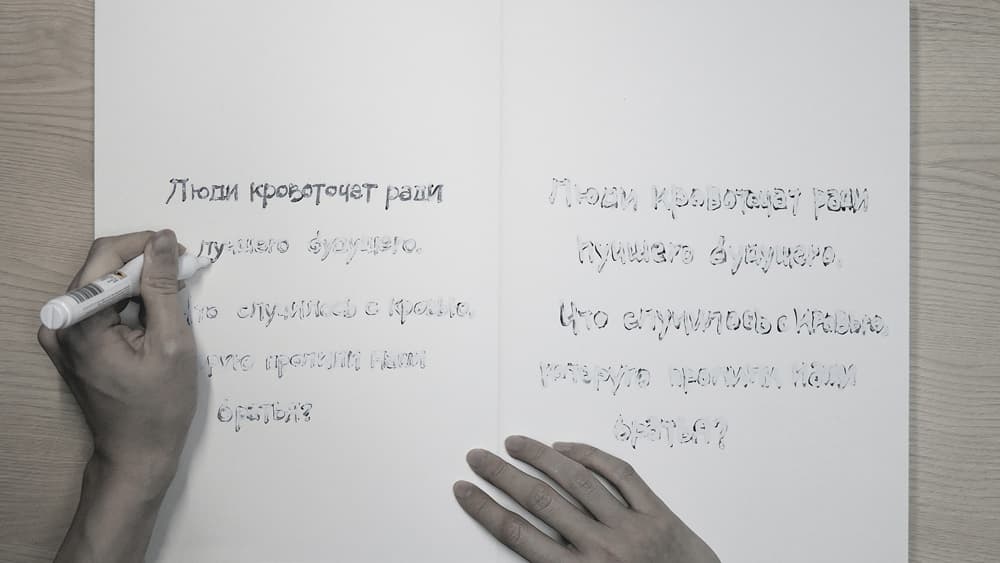 Люди кровоточат ради
лучшего будущего.
Что случилось с кровью,
пролили наши
братья?
Люди кровоточат ради
лучшего будущего.
Что случилось с кровью,
которую пролили наши
братья?